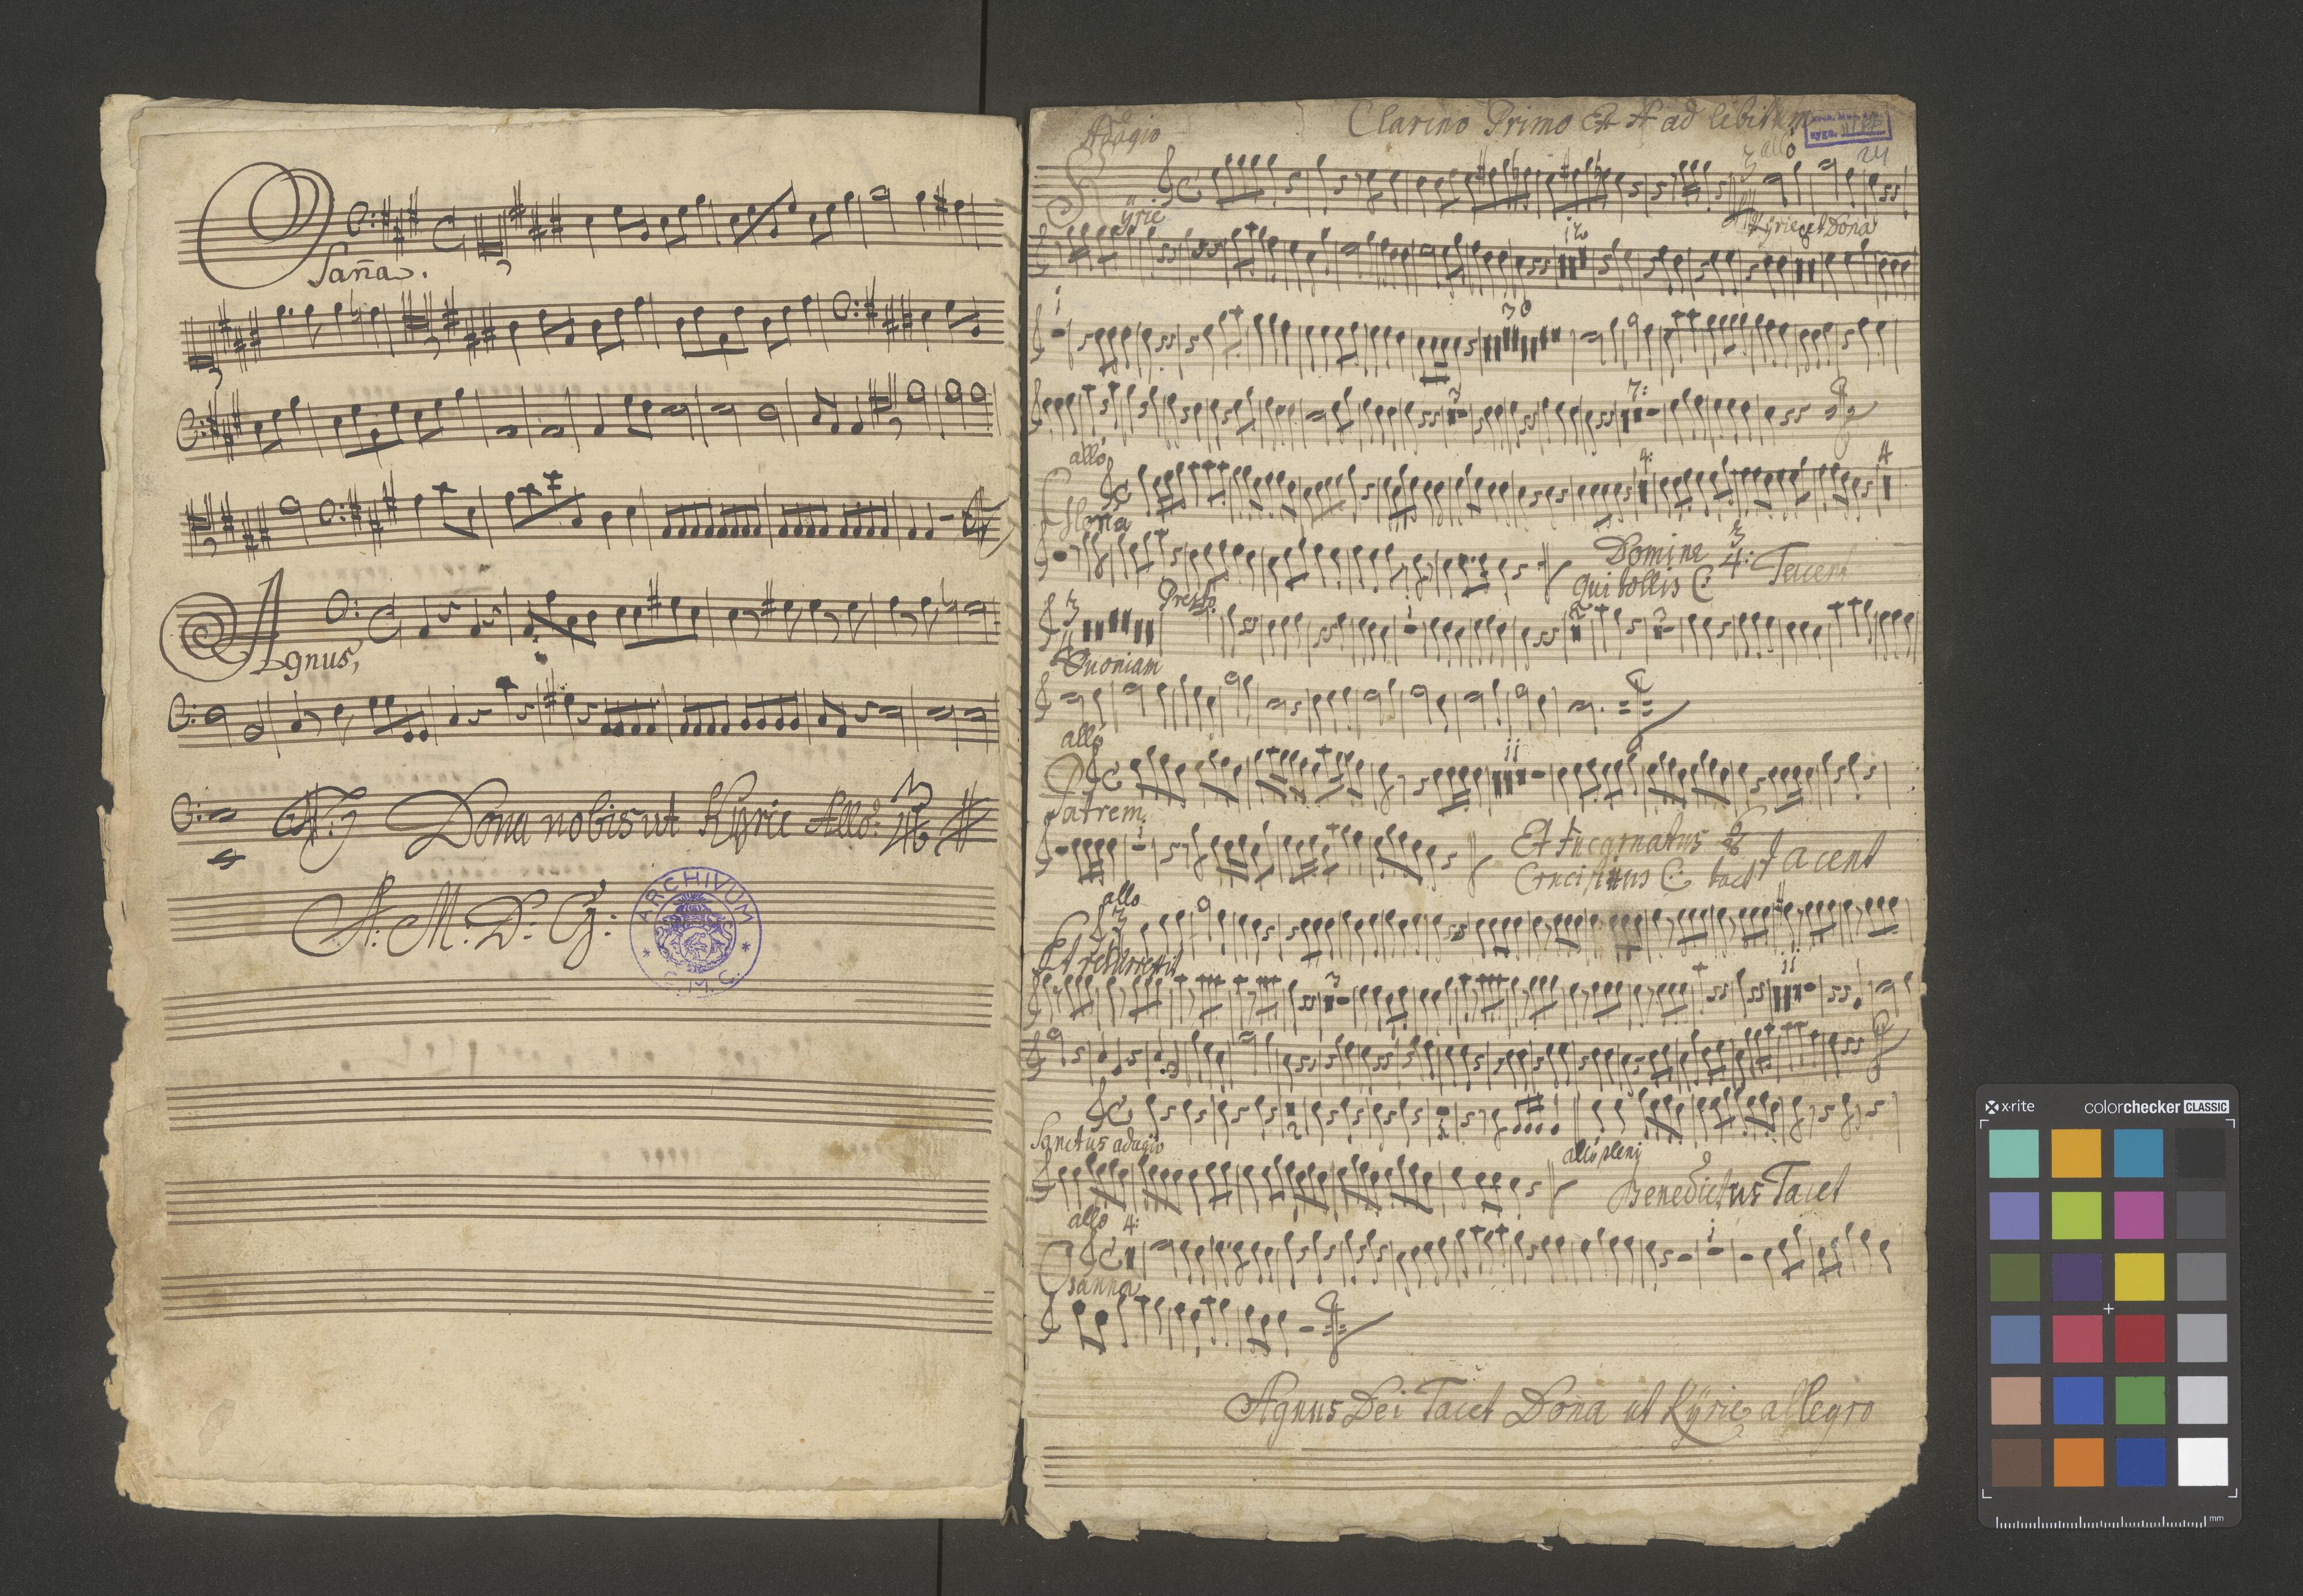 Osaña.
Agnus,
Dona nobis ut Kyrie Allo:
A: M: D: G:
ARCHIVUM
C. M. C.
Clarino Primo Ex A ad libitum
Adagio
allo
24
Kÿrie
Kÿrie et Dona
12
i
30
7:
allo
4:
4
Gloria
Domine 3/4: Tacent
Qui tollis C
3 Presto
Quoniam
allo
ii
Patrem
Et Incarnatus
Crucifixus C Tacent
allo
Et resurrexit
ii
Sanctus adagio
allo pleni
Benedictus Tacet
allo 4:
i
Osanna
Agnus Dei Tacet Dona ut Kÿrie allegro
x-rite
colorchecker CLASSIC
mm